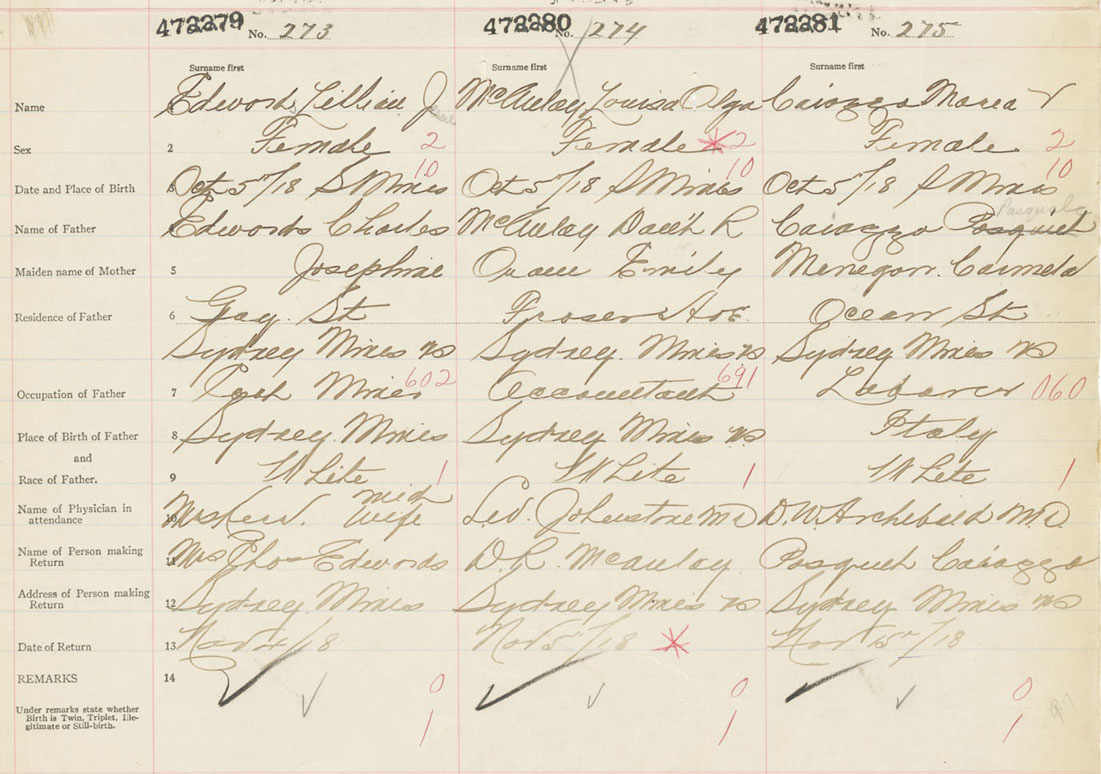 472279 No. 273 472280 No. 274 472281 No. 275
Surname first Surname first Surname first
Name Edwords Lillian J McAulay Louisa Olga Caiozzo Maria
Sex 2 Female 2 Female * 2 Female 2
10 10 10
Date and Place of Birth 3 Oct 5"/18 S Mines Oct 5"/18 S Mines Oct 5"/18 S Mines
Pasquale
Name of Father Edwords Charles McAulay Dan'l R Caiozzo Pasquel
Maiden name of Mother 5 Josephine Emily Menegon Carmela
Residence of Father 6 Gay St Fraser Ave Ocean St
Sydney Mines ns Sydney Mines ns Sydney Mines ns
Occupation of Father 7 Miner 602 Accountant 691 Laborer 060
Place of Birth of Father 8 Sydney Mines Sydney Mines ns Italy
and
Race of Father. 9 White 1 White 1 White 1
Name of Physician in attendance 10 Mrs mid wife Johnstone MD D.W. Archibald MD
Name of Person making Return 11 Mrs Thos Edwords D.R. McAulay Pasquel Caiozzo
Address of Person making Return 12 Sydney Mines Sydney Mines ns Sydney Mines ns
Date of Return 13 Nov 4/18 Nov 5"/18 * Nov 15"/18
REMARKS 14 0 0 0
Under remarks state whether
Birth is Twin, Triplet, Ille-
gitimate or Still-birth. 1 1 1